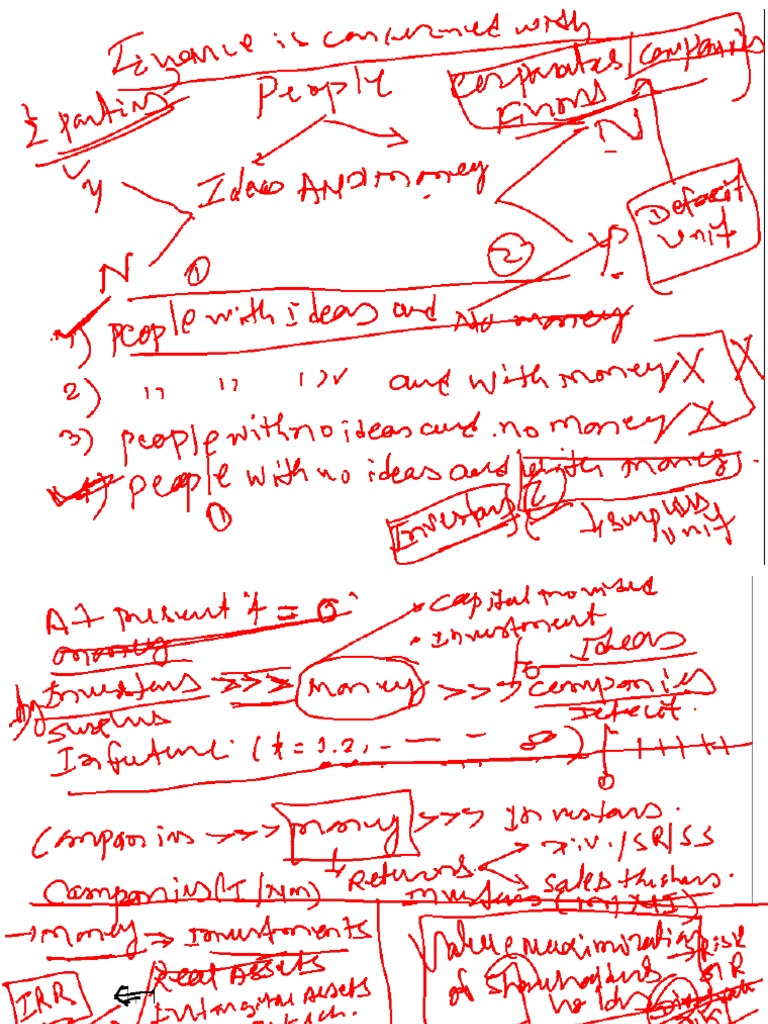 Finance is concerned with
2 parties People Corporates/companies
Firms
Y Ideas AND money N
Deficit
unit
N ① ② Y
1) People with Ideas and No money
2) " " " and with money X X
3) people with no ideas and no money X
4) people with no ideas and with money.
① Investors ② surplus
unit
At present t = 0
money
• Capital
• Investment
Ideas
by Investors >>> money >>> to companies
surplus Deficit.
In future (t = 1.2, - - - ∞)
0
Companies >>> money >>> Investors.
Returns Div./SR/SS
sales
Companies (I/Nm)
→ money => Investments
Real Assets
IRR Intangible Assets
Value maximization Risk
of shareholders